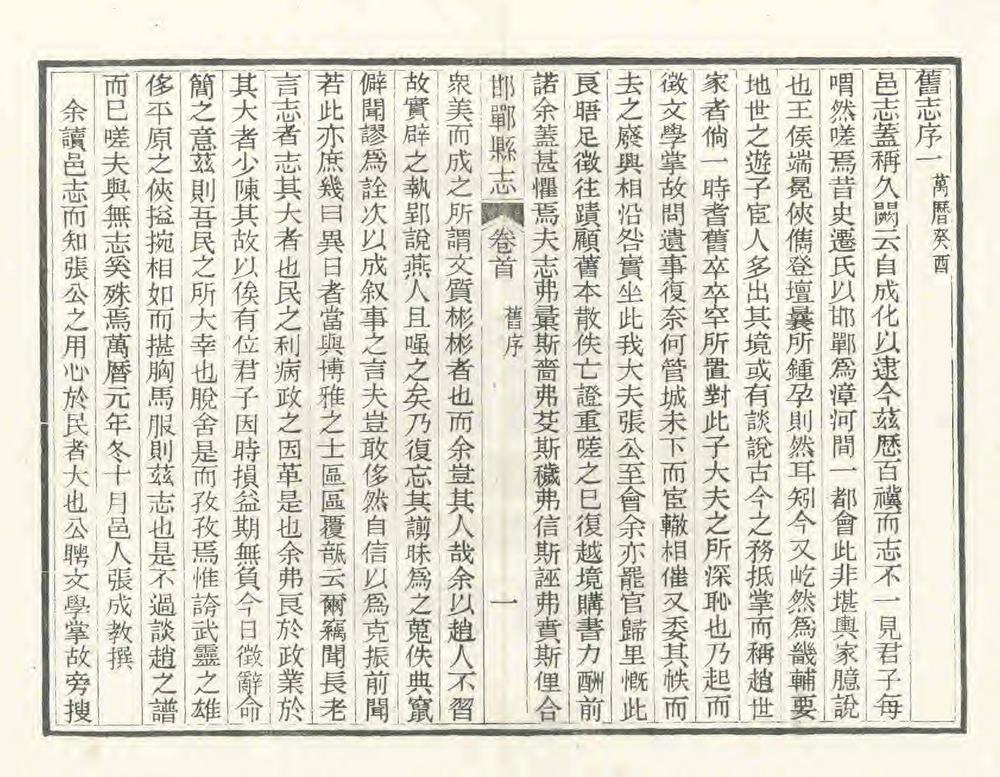 舊志序一 萬曆癸酉
邑志蓋稱久闕云自成化以逮今茲歷百禩而志不一見君子每
喟然嗟焉昔史遷氏以邯鄲爲漳河間一都會此非堪輿家臆說
也王侯端冕俠儁登壇曩所鍾孕則然耳矧今又屹然爲畿輔要
地世之遊子宦人多出其境或有談說古今之務抵掌而稱趙世
家者倘一時耆舊卒卒罕所置對此子大夫之所深恥也乃起而
徵文學掌故問遺事復奈何管城未下而宦轍相催又委其帙而
去之廢興相沿咎實坐此我大夫張公至會余亦罷官歸里慨此
艮晤足徵往蹟顧舊本散佚亡證重嗟之巳復越境購書力酬前
諾余蓋甚懼焉夫志弗彚斯嗇弗芟斯穢弗信斯誣弗賁斯俚合
邯鄲縣志 卷首 舊序 一
衆美而成之所謂文質彬彬者也而余豈其人哉余以趙人不習
故實辟之執郢說燕人且嗤之矣乃復忘其謭昧爲之蒐佚典竄
僻聞謬爲詮次以成叙事之言夫豈敢侈然自信以爲克振前聞
若此亦庶幾曰異日者當與博雅之士區區覆瓿云爾竊聞長老
言志者志其大者也民之利病政之因革是也余弗艮於政業於
其大者少陳其故以俟有位君子因時損益期無負今日徵辭命
簡之意茲則吾民之所大幸也脫舍是而孜孜焉惟誇武靈之雄
侈平原之俠搤捥相如而揕胸馬服則茲志也是不過談趙之譜
而巳嗟夫與無志奚殊焉萬曆元年冬十月邑人張成教撰
余讀邑志而知張公之用心於民者大也公聘文學掌故旁搜